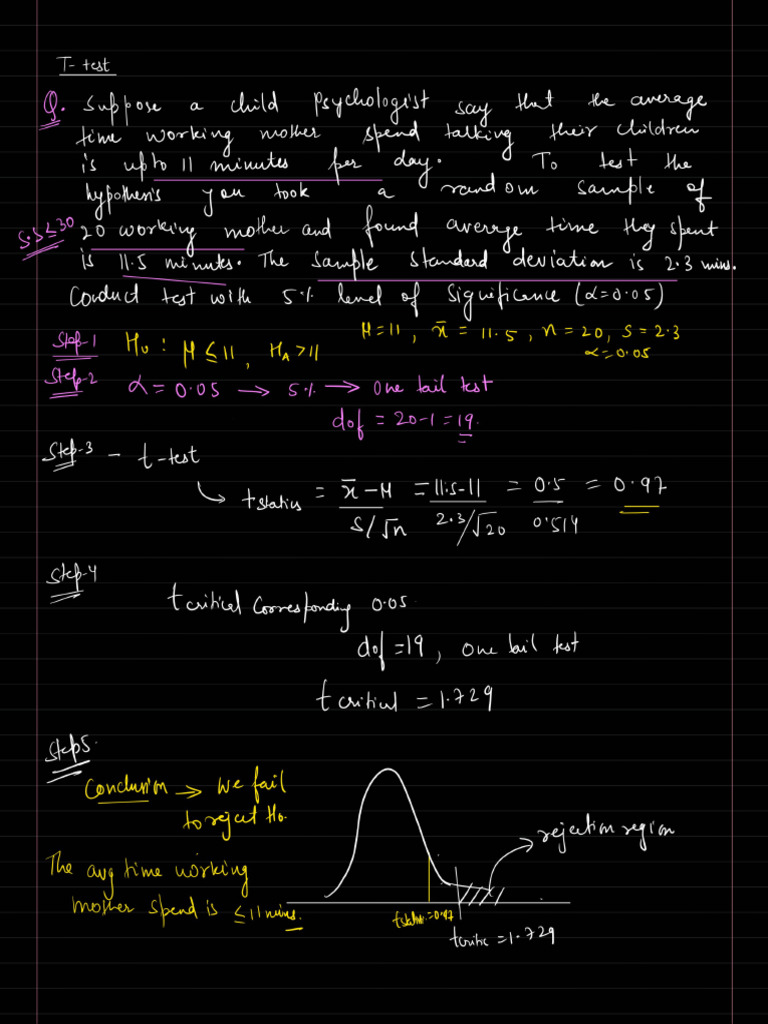 T-test
Q. Suppose a child psychologist say that the average
time working mother spend talking their children
is upto 11 minutes per day. To test the
hypothesis you took a random sample of
S.S≤30 20 working mother and found average time they spent
is 11.5 minutes. The sample standard deviation is 2.3 mins.
Conduct test with 5% level of Significance (α=0.05)
Step-1 H₀ : μ ≤ 11, H_A > 11 μ=11, x̄ = 11.5, n=20, s=2.3
α=0.05
Step-2 α = 0.05 → 5% → One tail test
dof = 20-1 = 19.
Step-3 - t-test
↳ t statics = x̄-μ / s/√n = 11.5-11 / 2.3/√20 = 0.5 / 0.514 = 0.97
Step-4
t critical corresponding 0.05
dof = 19, One tail test
t critical = 1.729
Step5.
Conclusion → We fail
to reject H₀.
rejection region
The avg time working
mother spend is ≤ 11 mins.
=0.97
t critic = 1.729